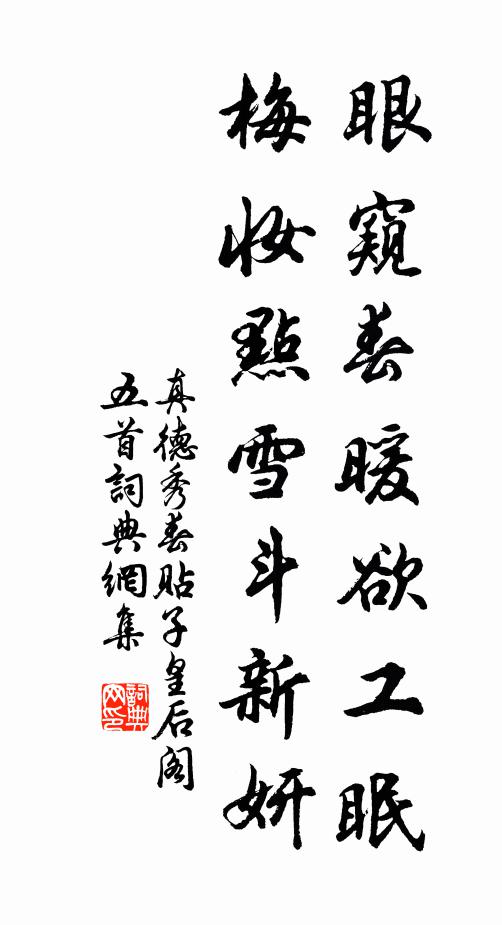 眼窺春暖欲工眠
梅妝點雪斗新妍
真德秀春貼子皇后閣
五首詞典網集
詞典
网印